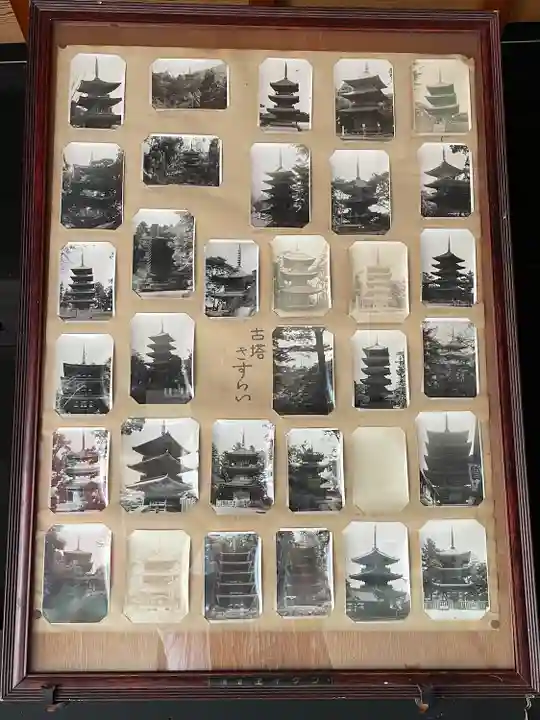 古塔
きすらい